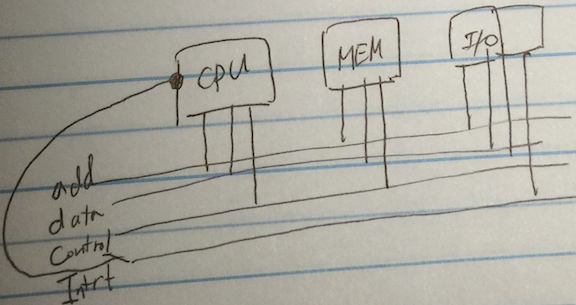 CPU
MEM
I/O
add
data
Control
Intrt